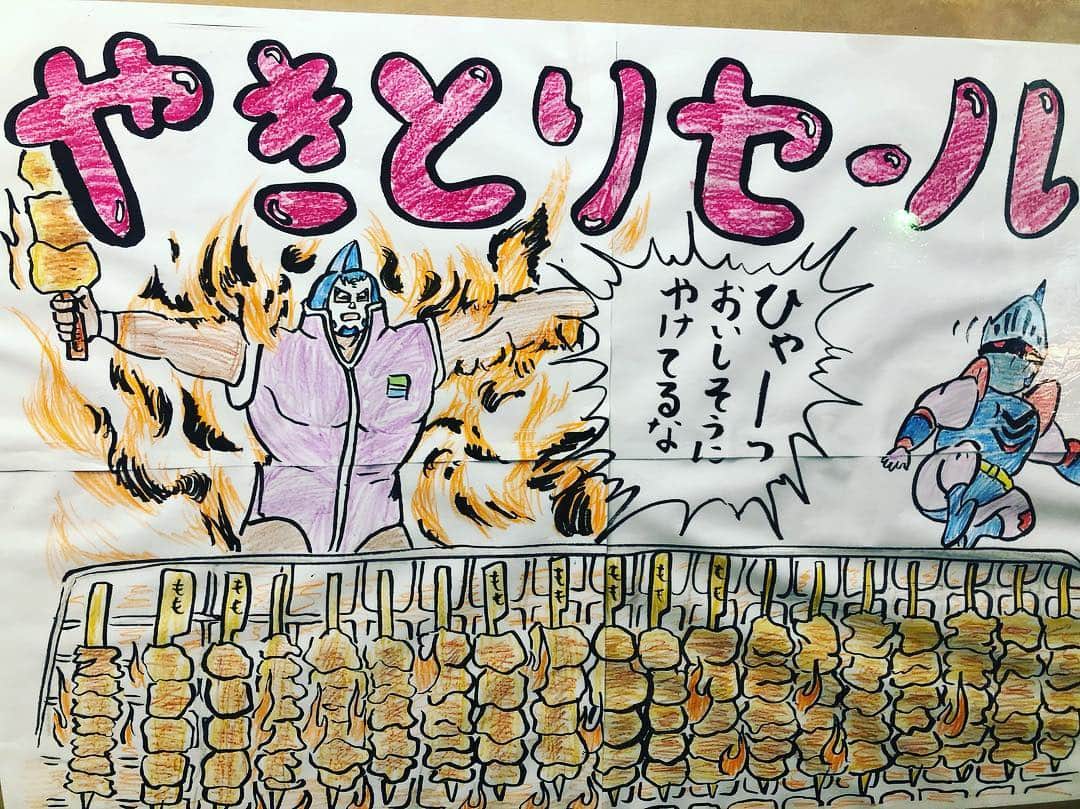 やきとりセール
ひゃーっ
おいしそうに
やけてるな
もも
もも
もも
もも
もも
もも
もも